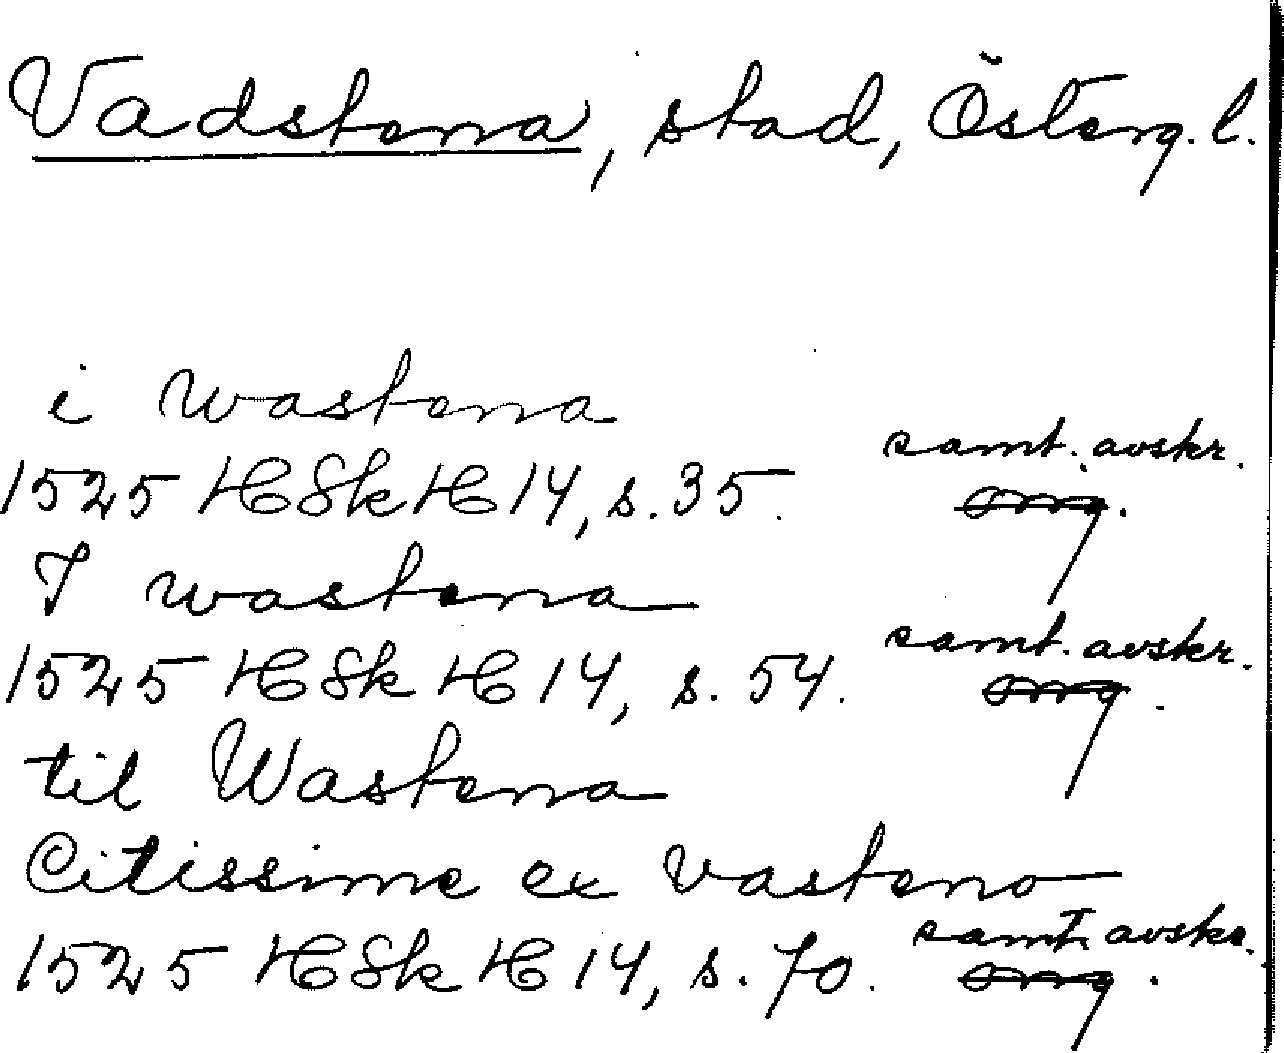 Vadstena, stad, Österg. l.
i Wastena
1525 HSkH 14, s. 35. samt. avskr.
org.
I wastena
1525 HSkH 14, s. 54. samt. avskr.
org.
til Wastena
Citissime ex vasteno
1525 HSkH 14, s. 70. samt. avskr.
org.